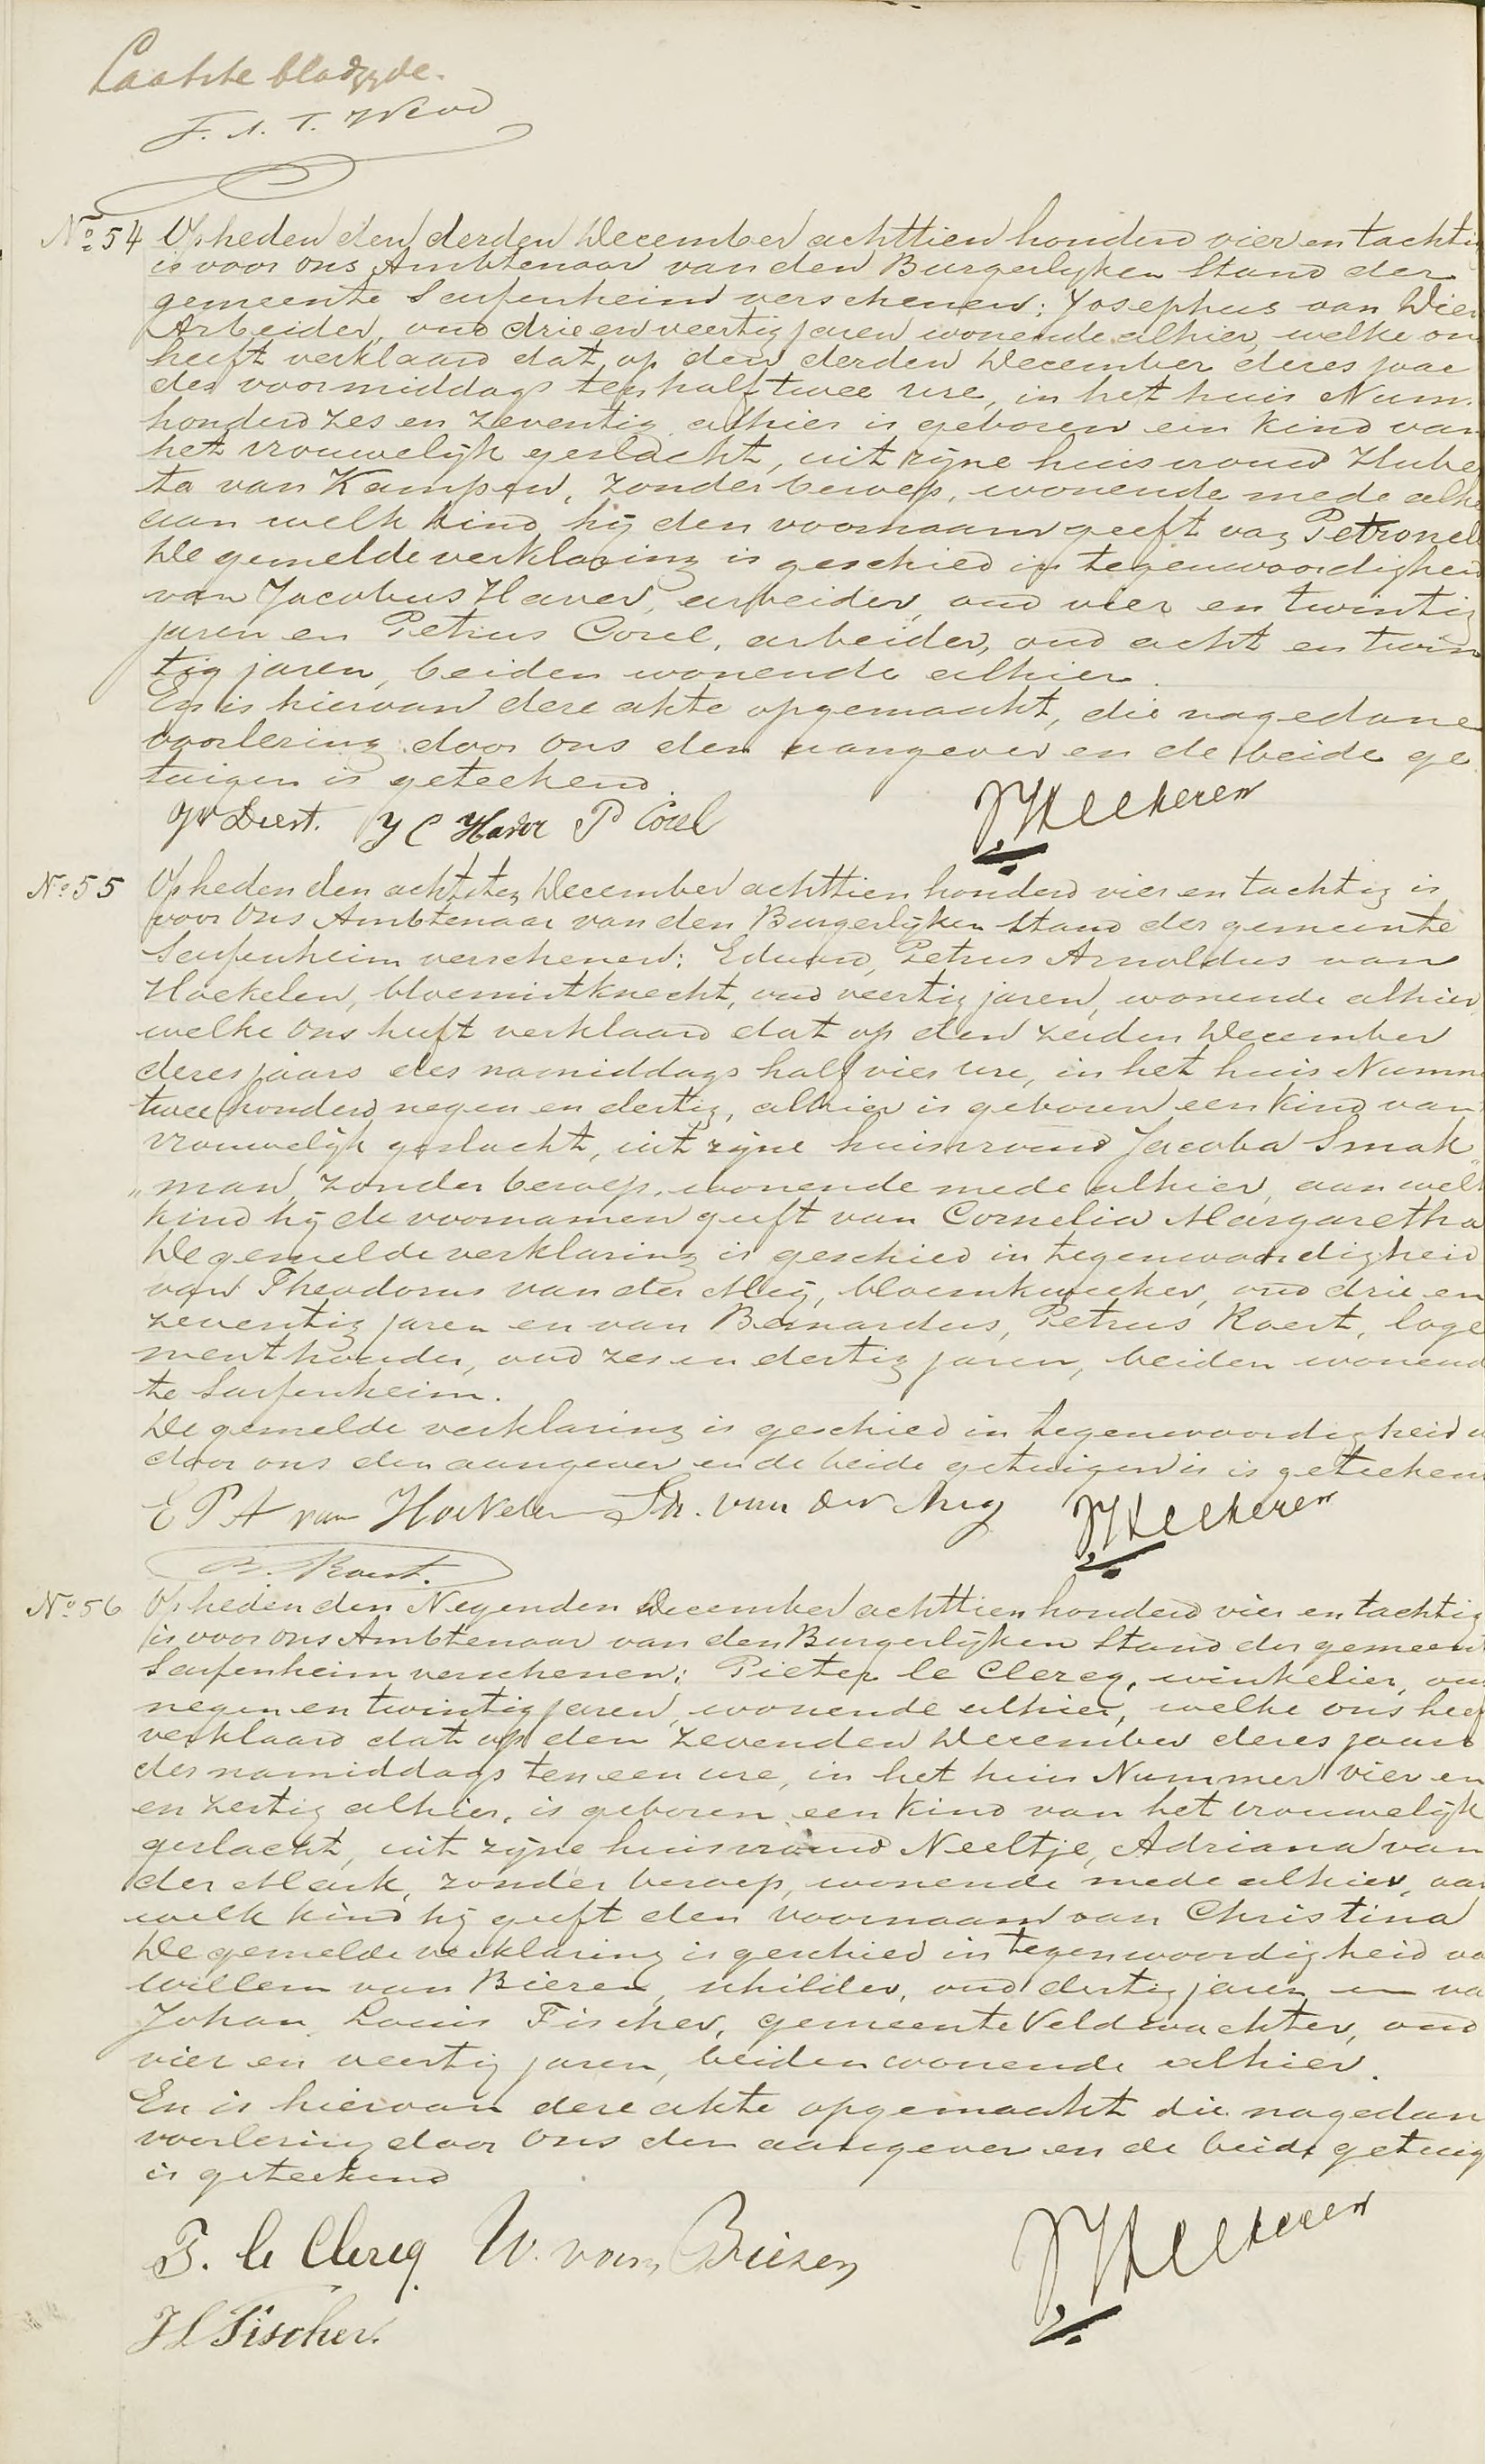 Laatste bladzyde.
F. A. T.
No. 54 Op heden den derden December achttien honderd vier en tachtig
is voor ons Ambtenaar van den Burgerlyken Stand der
gemeente Sassenheim verschenen: Josephus van Dies
Arbeider, oud drie en veertig jaren wonende alhier, welke on
heeft verklaard dat op den derden December dezes jaar
des voormiddags ten half twee ure, in het huis Num.
honderd zes en zeventig alhier is geboren een kind van
het vrouwelijk geslacht, uit zijne huisvrouw Hube
ta van Kampen, zonder beroep, wonende mede alhi
aan welk kind hij den voornaam geeft van Petronel
De gemelde verklaring is geschied in tegenwoordigheid
van Jacobus Haver, arbeider, oud vier en twintig
jaren en Petrus Corel, arbeider, oud acht en twin
tig jaren, beiden wonende alhier.
En is hiervan deze akte opgemaakt, die na gedane
voorlezing door ons den aangever en de beide ge
tuigen is geteekend.
J v Diest. J C Haver P Corel
No. 55 Op heden den achtsten December achttien honderd vier en tachtig is
voor Ons Ambtenaar van den Burgerlijken Stand der gemeente
Sassenheim verschenen: Eduard, Petrus Arnoldus van
Hoekelen, bloemistknecht, oud veertig jaren, wonende alhier,
welke Ons heeft verklaard dat op den zesden December
dezes jaars des namiddags half vier ure, in het huis Numme
twee honderd negen en dertig, alhier is geboren een kind van
vrouwelijk geslacht, uit zijne huisvrouw Jacoba Smak„
„man, zonder beroep, wonende mede alhier, aan welk
kind hij de voornamen geeft van Cornelia Margaretha
De gemelde verklaring is geschied in tegenwoordigheid
van Theodorus van der Meij, bloemkweeker, oud drie en
zeventig jaren en van Bernardus, Petrus Roest, loge
menthouder, oud zes en dertig jaren, beiden wonend
te Sassenheim.
De gemelde verklaring is geschied in tegenwoordigheid v
door ons den aangever en de beide getuigen is is geteeken
E P A van Hoekelen Th. van der Meij
B. Roest.
No. 56 Op heden den Negenden December achttien honderd vier en tachtig
is voor ons Ambtenaar van den Burgerlijken Stand der gemeent
Sassenheim verschenen: Pieter le Clercq, winkelier, oud
negen en twintig jaren, wonende alhier, welke ons heef
verklaard dat op den zevenden December dezes jaars
des namiddags ten een ure, in het huis Nummer vier en
en zestig alhier, is geboren een kind van het vrouwelijk
geslacht, uit zijne huisvrouw Neeltje, Adriana van
der Mark, zonder beroep, wonende mede alhier, aan
welk kind hij geeft den voornaam van Christina
De gemelde verklaring is geschied in tegenwoordigheid va
Willem van Biezen, schilder, oud dertig jaren en va
Johan Louis Fischer, gemeente Veldwachter, oud
vier en veertig jaren, beiden wonende alhier.
En is hiervan deze akte opgemaakt die na gedan
voorlezing door Ons den aangever en de beide getuig
is geteekend
P. le Clercq W. van Biezen
J L Fischer.